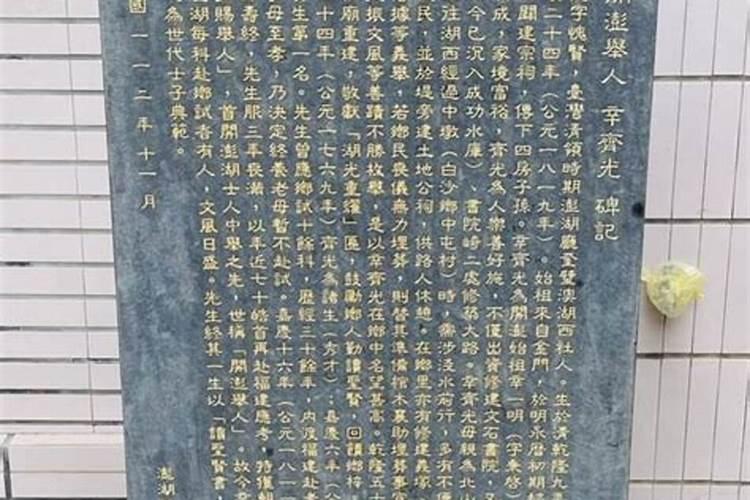 開澎舉人 辛齊光 碑記
字愧賢，臺灣清領時期澎湖廳奎壁澳湖西社人。生於清乾隆九
二十四年（公元一八一九年）。始祖來自金門，於明永曆初期
闢建宗祠，傳下四房子孫。辛齊光為開澎始祖辛一明（字秉啓
成，家境富裕，齊光為人樂善好施，不僅出資修建文石書院，又
今已沉入成功水庫）、書院崎二處修築大路。辛齊光母親為北山
往湖西經過中墩（白沙鄉中屯村）時，需涉淺水而行，多有不便
民，並於堤旁建土地公祠，供路人休憩。在鄉里亦有修建義塚
括據等義舉，若鄉民喪儀無力埋葬，則替其準備棺木襄助埋葬事宜
振文風等善蹟不勝枚舉，是以辛齊光在鄉中名望甚高。乾隆五十
廟重建，敬獻「湖光重耀」匾，鼓勵鄉人勤讀聖賢，回饋鄉梓
十四年（公元一七六九年）齊光為諸生（秀才）；嘉慶六年（公
生第一名。先生曾應鄉試十餘科，歷經三十餘年，內渡福建赴考
母至孝，乃決定終養老母暫不赴試。嘉慶十六年（公元一八一
壽終，先生服三年喪滿，以年近七十皓首再赴福建應考，特獲朝
賜舉人」，首開澎湖士人中舉之先，世稱「開澎舉人」。故今
湖每科赴鄉試者有人，文風日盛。先生終其一生以「讀聖賢書，
為世代士子典範。
國一一二年十一月
澎湖